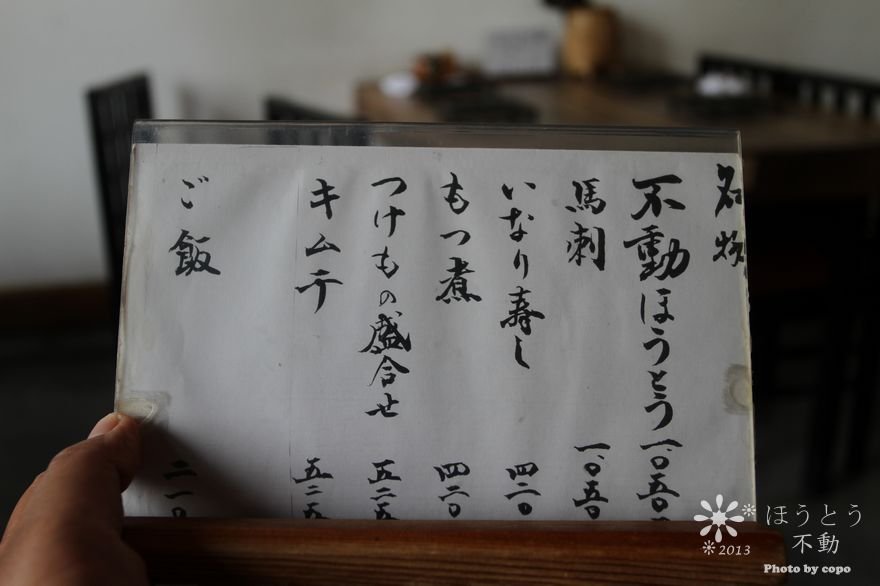 名物
不動ほうとう 一、〇五〇
馬刺 一、〇五〇
いなり寿し 四二〇
もつ煮 四二〇
つけもの盛合せ 五二五
キムチ 五二五
ご飯 二一〇
ほうとう
不動
2013
Photo by copo